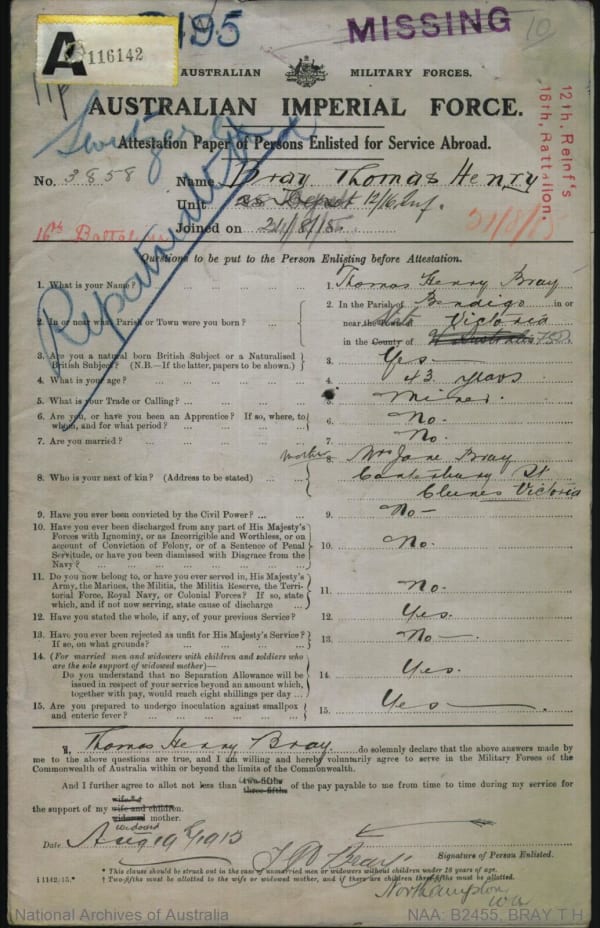 195
MISSING
10
A 116142
AUSTRALIAN MILITARY FORCES.
AUSTRALIAN IMPERIAL FORCE.
12th, Reinf's
16th, Battalion.
Attestation Paper of Persons Enlisted for Service Abroad.
No. 3858 Name Bray Thomas Henry
Unit Depot 12/16 Inf.
16th Battalion Joined on
Repatriated
Questions to be put to the Person Enlisting before Attestation.
1. What is your Name? ... 1. Thomas Henry Bray
2. In or near what Parish or Town were you born? ... 2. In the Parish of Bendigo in or
near the Town of Victoria
in the County of
3. Are you a natural born British Subject or a Naturalised
British Subject? (N.B.—If the latter, papers to be shown.) 3. Yes
4. What is your age? ... 4. 43 years
5. What is your Trade or Calling? ... 5. Miner.
6. Are you, or have you been an Apprentice? If so, where, to
whom, and for what period? ... 6. No.
7. Are you married? ... 7. No.
mother 8. Mrs Jane Bray
8. Who is your next of kin? (Address to be stated) ... Canterbury St
Clunes Victoria
9. Have you ever been convicted by the Civil Power? ... 9. No—
10. Have you ever been discharged from any part of His Majesty's
Forces with Ignominy, or as Incorrigible and Worthless, or on
account of Conviction of Felony, or of a Sentence of Penal
Servitude, or have you been dismissed with Disgrace from the
Navy? ... 10. No.
11. Do you now belong to, or have you ever served in, His Majesty's
Army, the Marines, the Militia, the Militia Reserve, the Terri-
torial Force, Royal Navy, or Colonial Forces? If so, state
which, and if not now serving, state cause of discharge ... 11. No.
12. Have you stated the whole, if any, of your previous Service? 12. Yes.
13. Have you ever been rejected as unfit for His Majesty's Service?
If so, on what grounds? ... 13. No—
14. (For married men and widowers with children and soldiers who
are the sole support of widowed mother)—
Do you understand that no Separation Allowance will be
issued in respect of your service beyond an amount which,
together with pay, would reach eight shillings per day ... 14. Yes.
15. Are you prepared to undergo inoculation against smallpox
and enteric fever? ... 15. Yes
I, Thomas Henry Bray do solemnly declare that the above answers made by
me to the above questions are true, and I am willing and hereby voluntarily agree to serve in the Military Forces of the
Commonwealth of Australia within or beyond the limits of the Commonwealth.
And I further agree to allot not less than two-fifths three-fifths of the pay payable to me from time to time during my service for
the support of my wife* wife and children. widowed mother.
widowed
Date Aug 19th
T H Bray
Signature of Person Enlisted.
* This clause should be struck out in the case of unmarried men or widowers without children under 18 years of age.
† Two-fifths must be allotted to the wife or widowed mother, and if there are children three-fifths must be allotted.
Northampton
WA
National Archives of Australia NAA: B2455, BRAY T H